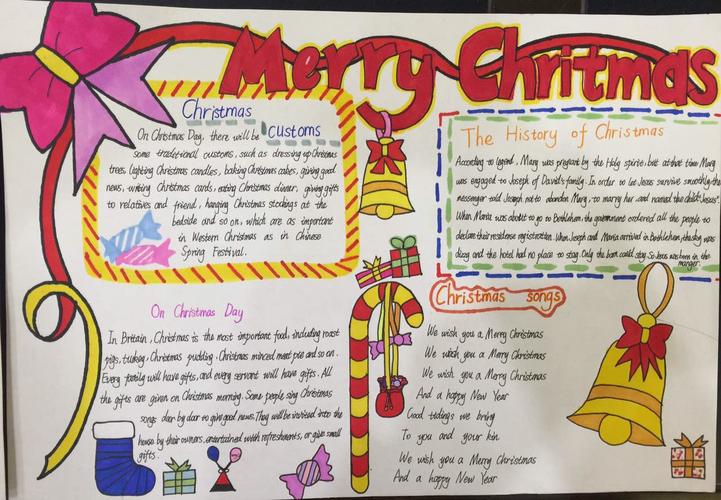 Merry Chritmas
Christmas
customs
On Christmas Day, there will be
some traditional customs, such as dressing up Christmas
trees, lighting Christmas candles, baking Christmas cakes, giving good
news, writing Christmas cards, eating Christmas dinner, giving gifts
to relatives and friend, hanging Christmas stockings at the
bedside and so on, which are as important
in Western Christmas as in Chinese
Spring Festival.
The History of Christmas
According to legend, Mary was pregnant by the Holy spirits, but at that time Mary
was engaged to Joseph of David's family. In order to let Jesus survive smoothly, the
messenger told Joseph not to abandon Mary, to marry her, and named the child "Jesus".
When Maria was about to go to Bethlehem, the government ordered all the people to
declare their residence registration. When Joseph and Maria arrived in Bethlehem, the sky was
and the hotel had no place to stay. Only the barn could stay. So Jesus was born in the
manger.
On Christmas Day
In Britain, Christmas is the most important food, including roast
pigs, turkey, Christmas pudding, Christmas minced meat pie and so on.
Every family will have gifts, and every servant will have gifts. All
the gifts are given on Christmas morning. Some people sing Christmas
songs door by door to give good news. They will be invited into the
house by their owners, entertained with refreshments, or give small
gifts.
Christmas songs
We wish you a Merry Christmas
We wish you a Merry Christmas
We wish you a Merry Christmas
And a happy New Year
Good tidings we bring
To you and your kin
We wish you a Merry Christmas
And a happy New Year